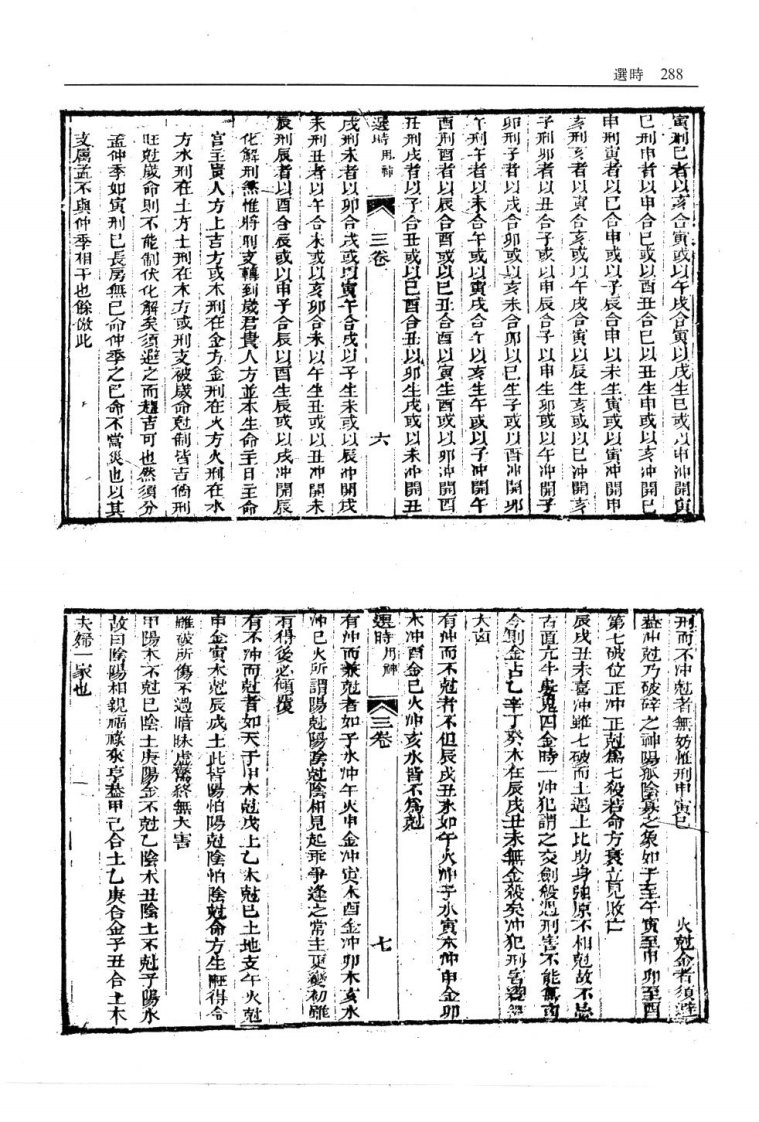 選時 288
寅刑巳者以亥合寅或以午戌合寅以戌生巳或以申沖開寅
巳刑申者以申合巳或以酉丑合巳以丑生申或以亥沖開巳
申刑寅者以巳合申或以子辰合申以未生寅或以寅沖開申
亥刑亥者以寅合亥或以午戌合寅以辰生亥或以巳沖開亥
子刑卯者以丑合子或以申辰合子以申生卯或以午沖開子
卯刑子者以戌合卯或以亥未合卯以巳生子或以酉沖開卯
午刑午者以未合午或以寅戌合午以亥生午或以子沖開午
酉刑酉者以辰合酉或以巳丑合酉以寅生酉或以卯沖開酉
丑刑戌者以子合丑或以巳酉合丑以卯生戌或以未沖開丑
選時用神 三卷 六
戌刑未者以卯合戌或以寅午合戌以子生未或以辰沖開戌
未刑丑者以午合未或以亥卯合未以午生丑或以丑沖開未
辰刑辰者以酉合辰或以申子合辰以酉生辰或以戌沖開辰
化解刑煞惟將刑支轉到歲君貴人方並本生命主日主命
宮主貴人方上吉方或木刑在金方金刑在火方火刑在水
方水刑在土方土刑在木方或刑支被歲命尅制皆吉倘刑
旺尅歲命則不能制伏化解矣須避之而趨吉可也然須分
孟仲季如寅刑巳長房無巳命仲季之巳命不當災也以其
支属孟不與仲季相干也餘倣此
刑而不沖尅者無妨惟刑申寅巳 火尅金者須避
蓋沖尅乃破碎之神陽孤陰寡之象如子至午寅至申卯至酉
第七破位正沖正尅為七殺若命方衰立見敗亡
辰戌丑未喜沖雖七破而土遇土比助身強原不相尅故不忌
古直亢牛婁鬼四金時一沖犯謂之交劍殺忌刑害不能為
今則金占乙辛丁癸木在辰戌丑未無金殺矣沖犯刑害
大凶
有沖而不尅者不但辰戌丑未如午火沖子水寅木沖申金卯
木沖酉金巳火沖亥水皆不為尅
選時用神 三卷 七
有沖而兼尅者如子水沖午火申金沖寅木酉金沖卯木亥水
沖巳火所謂陽尅陽陰尅陰相見起乖爭逢之常主更變初雖
有得後必傾覆
有不沖而尅者如天干甲木尅戊土乙木尅巳土地支午火尅
申金寅木尅辰戌土此皆陽怕陽尅陰怕陰尅命方生旺得令
雖破所傷不過暗昧虛驚終無大害
甲陽木不尅巳陰土庚陽金不尅乙陰木丑陰土不尅子陽水
故曰陰陽相親福祿來亨蓋甲己合土乙庚合金子丑合土木
夫婦一家也